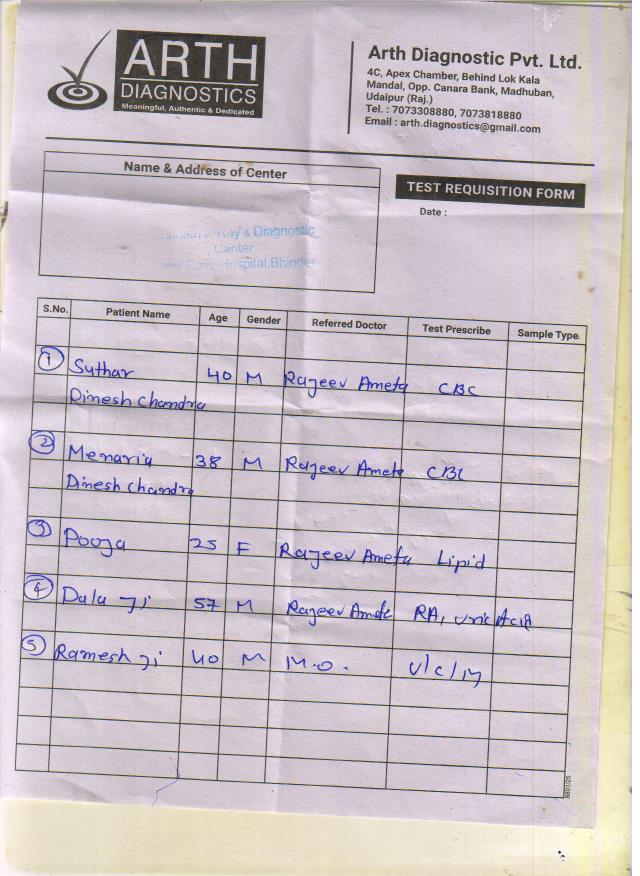 ARTH
DIAGNOSTICS
Meaningful, Authentic & Dedicated
Arth Diagnostic Pvt. Ltd.
4C, Apex Chamber, Behind Lok Kala
Mandal, Opp. Canara Bank, Madhuban,
Udaipur (Raj.)
Tel. : 7073308880, 7073818880
Email : arth.diagnostics@gmail.com
Name & Address of Center
TEST REQUISITION FORM
Date :
X-Ray & Diagnostic
Center
Hospital,Bhinder
S.No. Patient Name Age Gender Referred Doctor Test Prescribe Sample Type
1 Suthar 40 M Rajeev Ameta CBC
Dinesh Chandra
2 Menaria 38 M Rajeev Ameta CBC
Dinesh Chandra
3 Pooja 25 F Rajeev Ameta Lipid
4 Dalu Ji 57 M Rajeev Ameta RA, Uric Acid
5 Ramesh Ji 40 M M.O. U/C/M